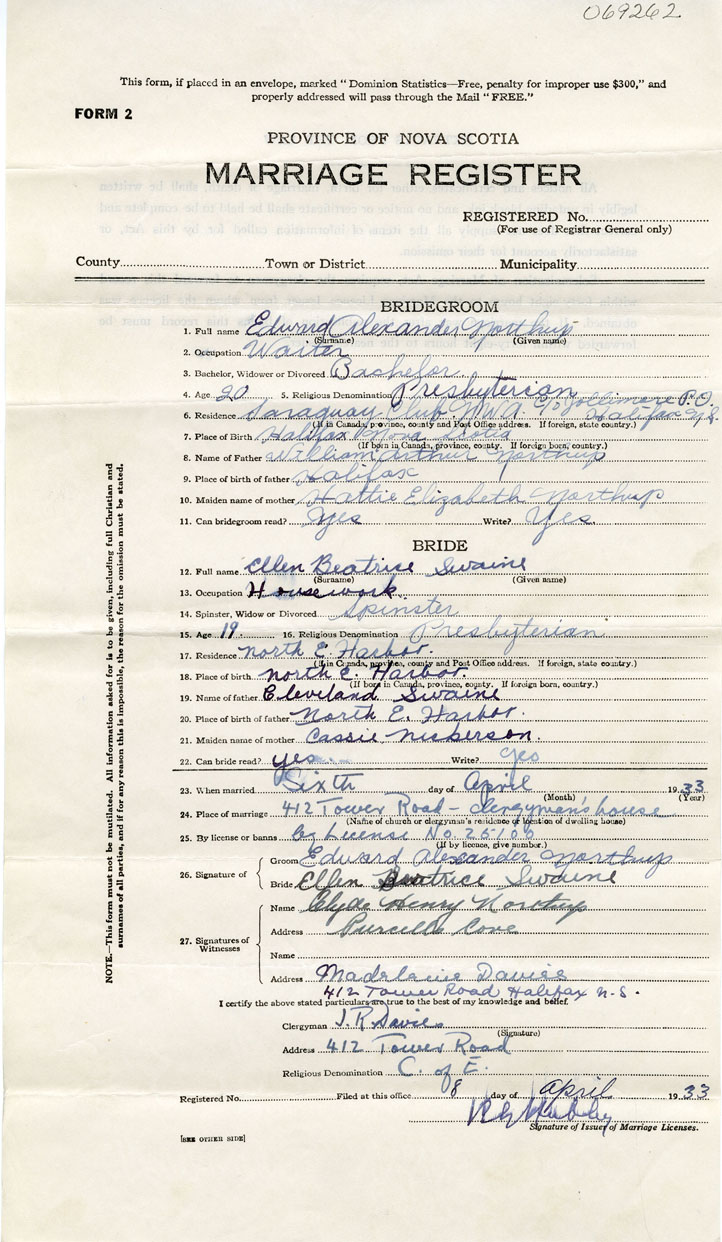 069262
This form, if placed in an envelope, marked "Dominion Statistics—Free, penalty for improper use $300," and
properly addressed will pass through the Mail "FREE."
FORM 2
PROVINCE OF NOVA SCOTIA
MARRIAGE REGISTER
REGISTERED No.
(For use of Registrar General only)
County Town or District Municipality
BRIDEGROOM
1. Full name Edward Alexander Northup
(Surname) (Given name)
2. Occupation Waiter
3. Bachelor, Widower or Divorced Bachelor
4. Age 20 5. Religious Denomination Presbyterian
6. Residence Saraguay Club N.W.A. c/o Jollimore P.O. Halifax N.S.
(If in Canada, province, county and Post Office address. If foreign, state country.)
7. Place of Birth Halifax Nova Scotia
(If born in Canada, province, county. If foreign born, country.)
8. Name of Father William Arthur Northup
9. Place of birth of father Halifax
10. Maiden name of mother Hattie Elizabeth Northup
11. Can bridegroom read? Yes Write? Yes.
BRIDE
12. Full name Ellen Beatrice Swaine
(Surname) (Given name)
13. Occupation Housework.
14. Spinster, Widow or Divorced Spinster
15. Age 19 16. Religious Denomination Presbyterian
17. Residence North E. Harbor.
(If in Canada, province, county and Post Office address. If foreign, state country.)
18. Place of birth North E. Harbor.
(If born in Canada, province, county. If foreign born, country.)
19. Name of father Cleveland Swaine
20. Place of birth of father North E. Harbor.
21. Maiden name of mother Cassie Nickerson.
22. Can bride read? yes Write? yes
23. When married Sixth day of April 1933
(Month) (Year)
24. Place of marriage 412 Tower Road - clergyman's house
(Name of church or clergyman's residence or location of dwelling house)
25. By license or banns by License No. 25106
(If by licence, give number.)
26. Signature of
Groom Edward Alexander Northup
Bride Ellen Beatrice Swaine
27. Signatures of Witnesses
Name Clyde Henry Northup
Address Purcells Cove
Name
Address Madelaine Davies
412 Tower Road Halifax N.S.
I certify the above stated particulars are true to the best of my knowledge and belief.
Clergyman J. R. Davies
(Signature)
Address 412 Tower Road
Religious Denomination C. of E.
Registered No. Filed at this office 8 day of April 1933
Signature of Issuer of Marriage Licenses.
[SEE OTHER SIDE]
NOTE.—This form must not be mutilated. All information asked for is to be given, including full Christian and
surnames of all parties, and if for any reason this is impossible, the reason for the omission must be stated.